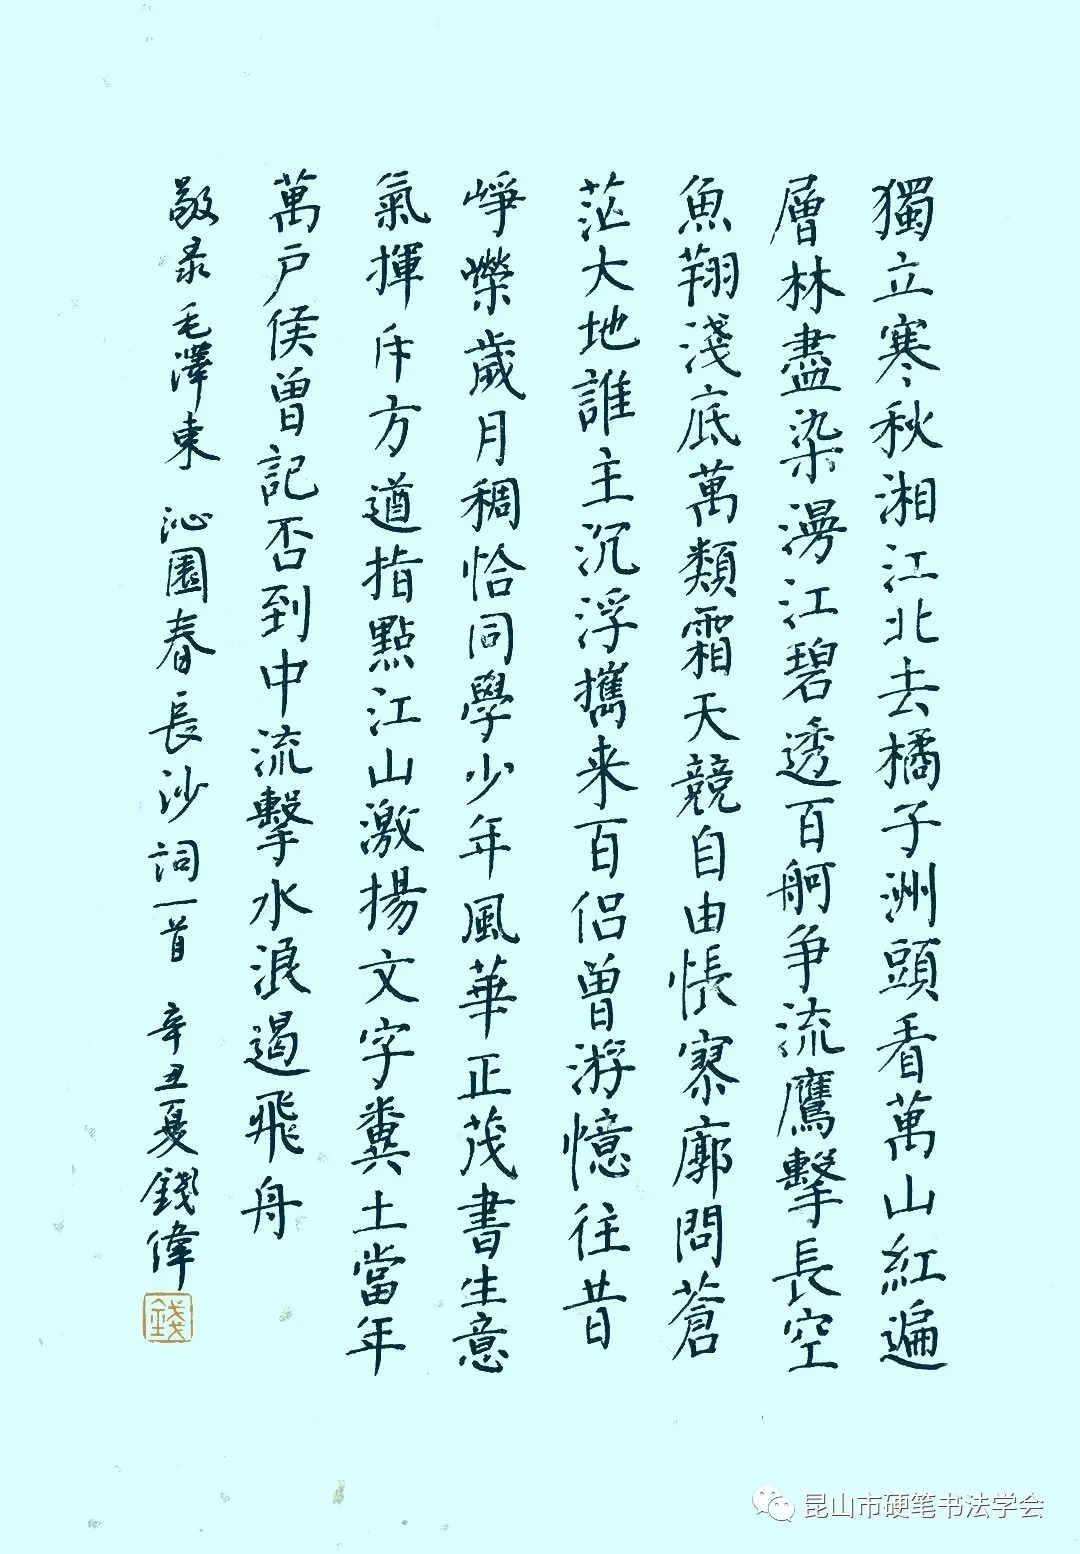 獨立寒秋湘江北去橘子洲頭看萬山紅遍
層林盡染漫江碧透百舸爭流鷹擊長空
魚翔淺底萬類霜天競自由悵寥廓問蒼
茫大地誰主沉浮攜来百侣曾游憶往昔
崢嶸歲月稠恰同學少年風華正茂書生意
氣揮斥方遒指點江山激揚文字糞土當年
萬户侯曾記否到中流擊水浪遏飛舟
敬录毛澤東 沁園春長沙詞一首 辛丑夏錢偉
錢
昆山市硬笔书法学会